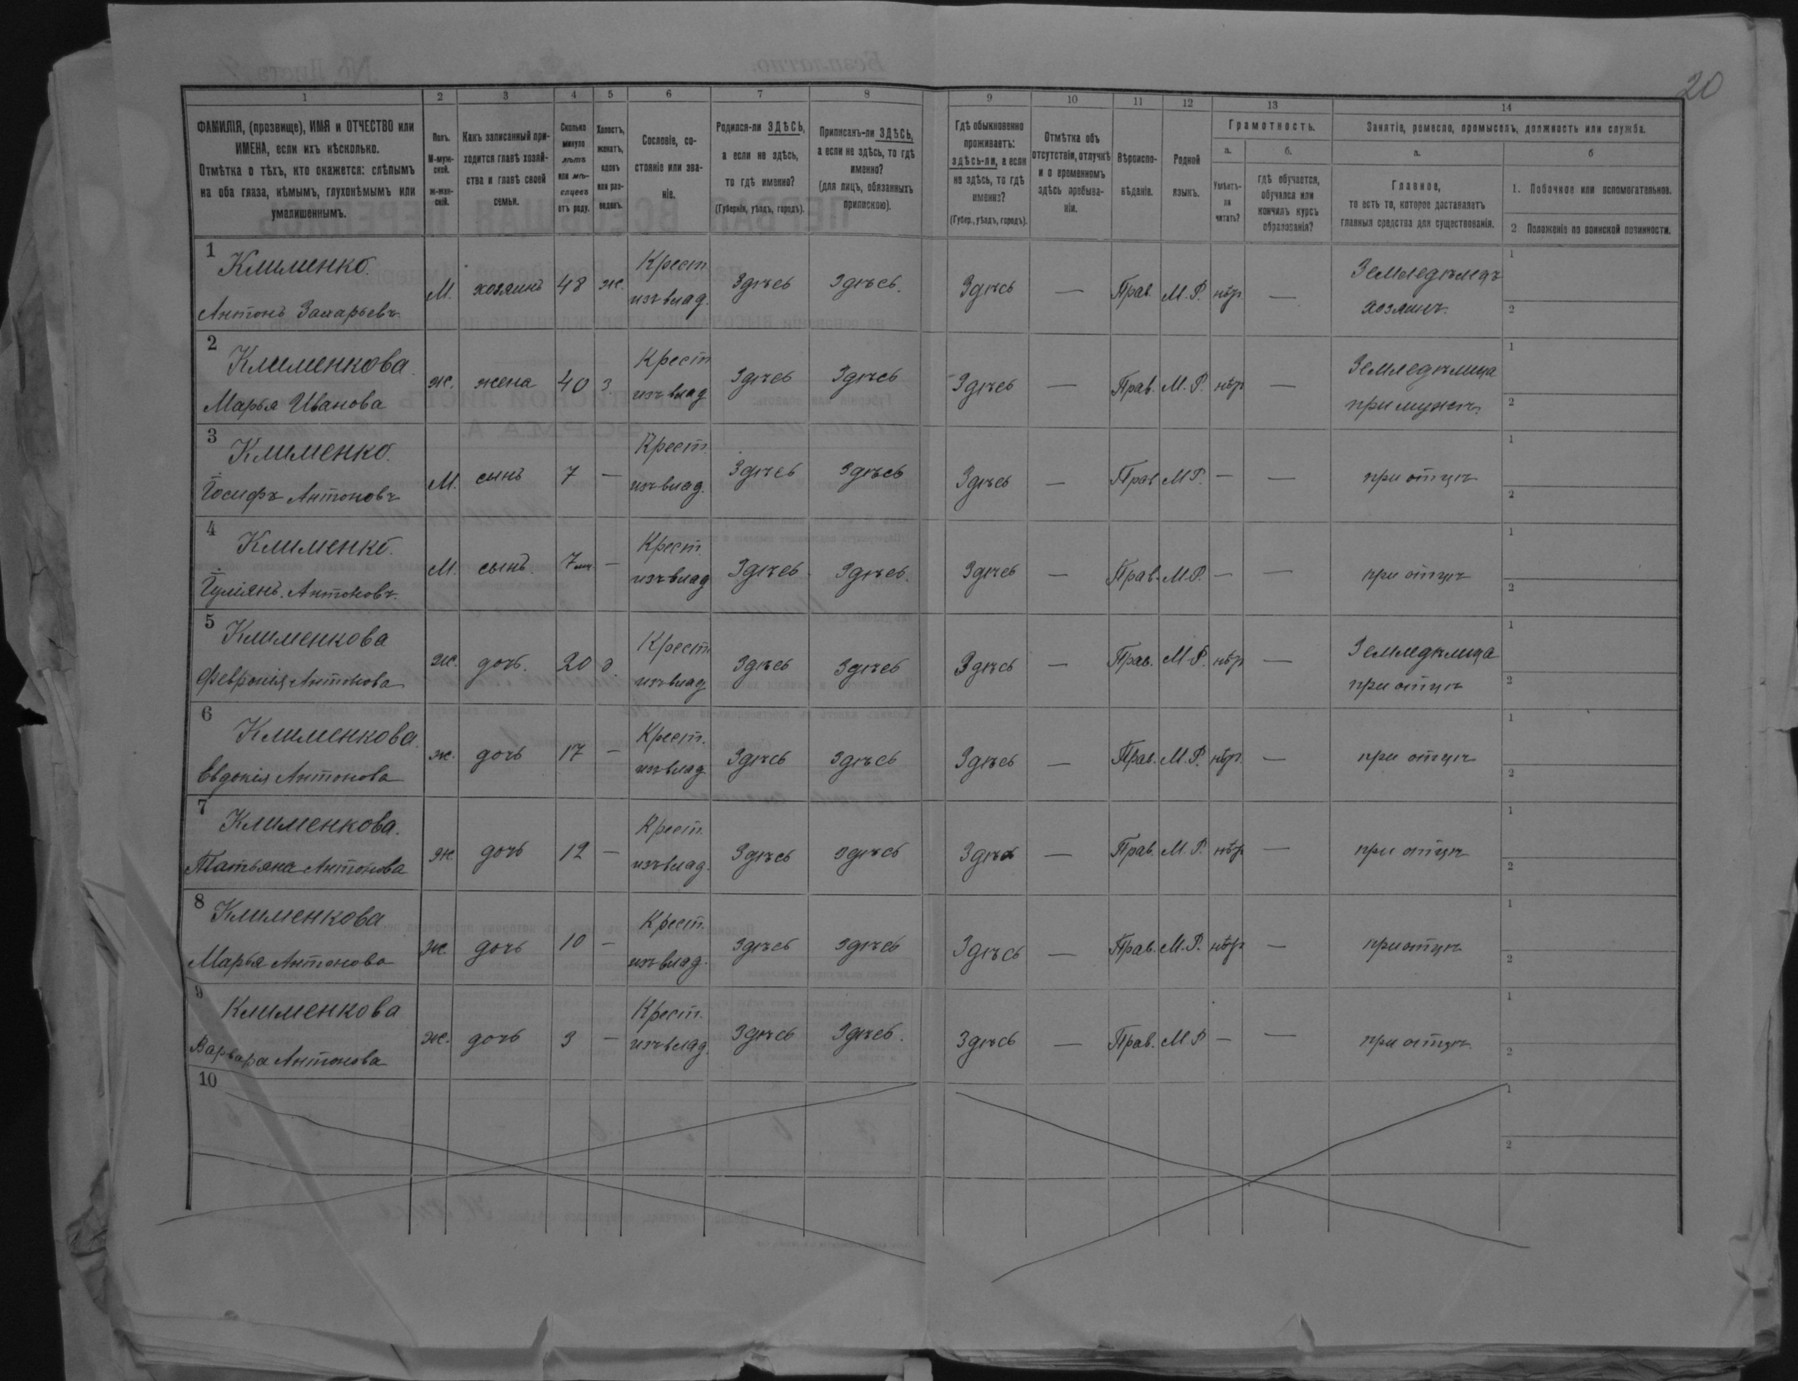 20
1 2 3 4 5 6 7 8 9 10 11 12 13 14
ФАМИЛІЯ, (прозвище), ИМЯ и ОТЧЕСТВО или ИМЕНА, если ихъ нѣсколько.
Отмѣтка о тѣхъ, кто окажется: слѣпымъ на оба глаза, нѣмымъ, глухонѣмымъ или умалишеннымъ.
Полъ. М-мужской. ж-женскій.
Какъ записанный приходится главѣ хозяйства и главѣ своей семьи.
Сколько минуло лѣтъ или мѣсяцевъ отъ роду.
Холостъ, женатъ, вдовъ или разведенъ.
Сословіе, состояніе или званіе.
Родился-ли ЗДѢСЬ, а если не здѣсь, то гдѣ именно? (Губернія, уѣздъ, городъ).
Приписанъ-ли ЗДѢСЬ, а если не здѣсь, то гдѣ именно? (для лицъ, обязанныхъ припискою).
Гдѣ обыкновенно проживаетъ: здѣсь-ли, а если не здѣсь, то гдѣ именно? (Губер., уѣздъ, городъ).
Отмѣтка объ отсутствіи, отлучкѣ и о временномъ здѣсь пребываніи.
Вѣроисповѣданіе.
Родной языкъ.
Грамотность.
а. Умѣетъ-ли читать?
б. гдѣ обучается, обучался или кончилъ курсъ образованія?
Занятіе, ремесло, промыселъ, должность или служба.
а. Главное, то есть то, которое доставляетъ главныя средства для существованія.
б
1. Побочное или вспомогательное.
2 Положеніе по воинской повинности.
1 Клименко. Крест. Земледѣлецъ 1
Антонъ Захарьевъ М. хозяинъ 48 ж. изъ влад. Здѣсь Здѣсь. Здѣсь — Прав. М.Р. нѣт — хозяинъ. 2
2 Клименкова. Крест Земледѣлица 1
Марья Иванова ж. жена 40 з изъ влад Здѣсь Здѣсь Здѣсь — Прав. М.Р. нѣт — при мужѣ. 2
3 Клименко. Крест. 1
Іосифъ Антоновъ М. сынъ 7 — изъ влад. Здѣсь Здѣсь Здѣсь — Прав М.Р. — — при отцѣ 2
4 Клименко. Крест 1
Антоновъ. М. сынъ. 7 — изъ влад Здѣсь. Здѣсь. Здѣсь — Прав. М.Р. — — при отцѣ 2
5 Клименкова Крест Земледѣлица 1
Февронія Антонова ж. дочь. 20 д изъ влад Здѣсь Здѣсь Здѣсь — Прав. М.Р. нѣт — при отцѣ 2
6 Клименкова. Крест. 1
Евдокія Антонова ж. дочь 17 — изъ влад Здѣсь Здѣсь Здѣсь — Прав. М.Р. нѣт — при отцѣ 2
7 Клименкова. Крест 1
Татьяна Антонова ж дочь 12 — изъ влад. Здѣсь Здѣсь Здѣсь — Прав. М.Р. нѣт — при отцѣ 2
8 Клименкова Крест. 1
Марья Антонова ж. дочь 10 — изъ влад. Здѣсь Здѣсь Здѣсь — Прав. М.Р. нѣт — при отцѣ 2
9 Клименкова Крест. 1
Варвара Антонова ж. дочь 3 — изъ влад. Здѣсь Здѣсь. Здѣсь — Прав. М.Р — — при отцѣ 2
10 1
2